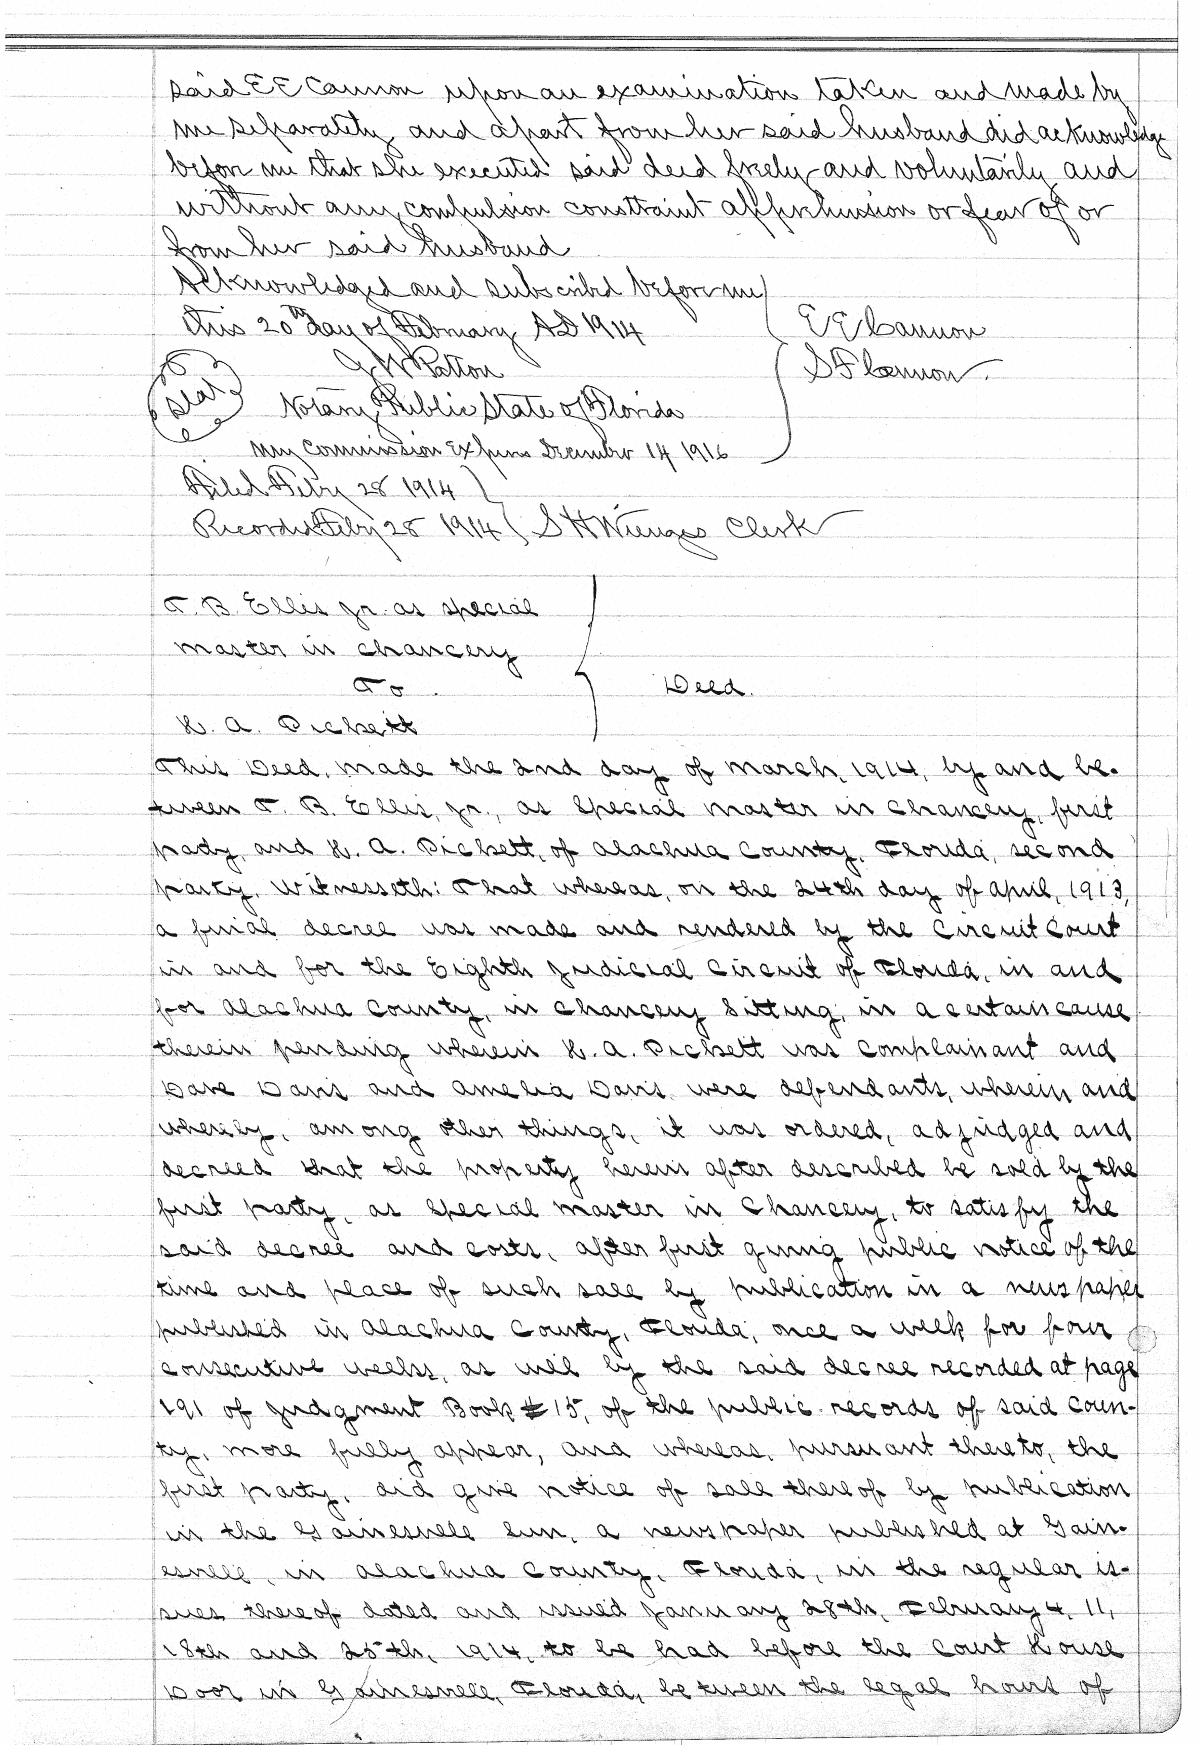 said E E Cannon upon an examination taken and made by
me separately and apart from her said husband did acknowledge
before me that she executed said deed freely and voluntarily and
without any compulsion constraint apprehension or fear of or
from her said husband
Acknowledged and subscribed before me
this 20th day of February AD 1914
E E Cannon
G W Patton
S F Cannon
Seal
Notary Public State of Florida
My commission Expires December 14 1916
Filed Feby 28 1914
Recorded Feby 28 1914 S H Wienges Clerk
T. B. Ellis Jr. as special
master in chancery
To
Deed.
H. A. Pickett
This Deed, made the 2nd day of March, 1914, by and be-
tween T. B. Ellis, Jr., as Special Master in Chancery, first
party, and H. A. Pickett, of Alachua County, Florida, second
party, Witnesseth: That whereas, on the 24th day of April, 1913,
a final decree was made and rendered by the Circuit Court
in and for the Eighth Judicial Circuit of Florida, in and
for Alachua County, in Chancery Sitting, in a certain cause
therein pending wherein H. A. Pickett was complainant and
Dave Davis and Amelia Davis were defendants, wherein and
whereby, among other things, it was ordered, adjudged and
decreed that the property herein after described be sold by the
first party, as Special Master in Chancery, to satisfy the
said decree and costs, after first giving public notice of the
time and place of such sale by publication in a newspaper
published in Alachua County, Florida, once a week for four
consecutive weeks, as will by the said decree recorded at page
191 of Judgment Book # 15, of the public records of said Coun-
ty, more fully appear, and whereas, pursuant thereto, the
first party, did give notice of sale thereof by publication
in the Gainesville Sun, a newspaper published at Gain-
esville, in Alachua County, Florida, in the regular is-
sues thereof dated and issued January 28th, February 4, 11,
18th and 25th, 1914, to be had before the Court House
Door in Gainesville, Florida, between the legal hours of